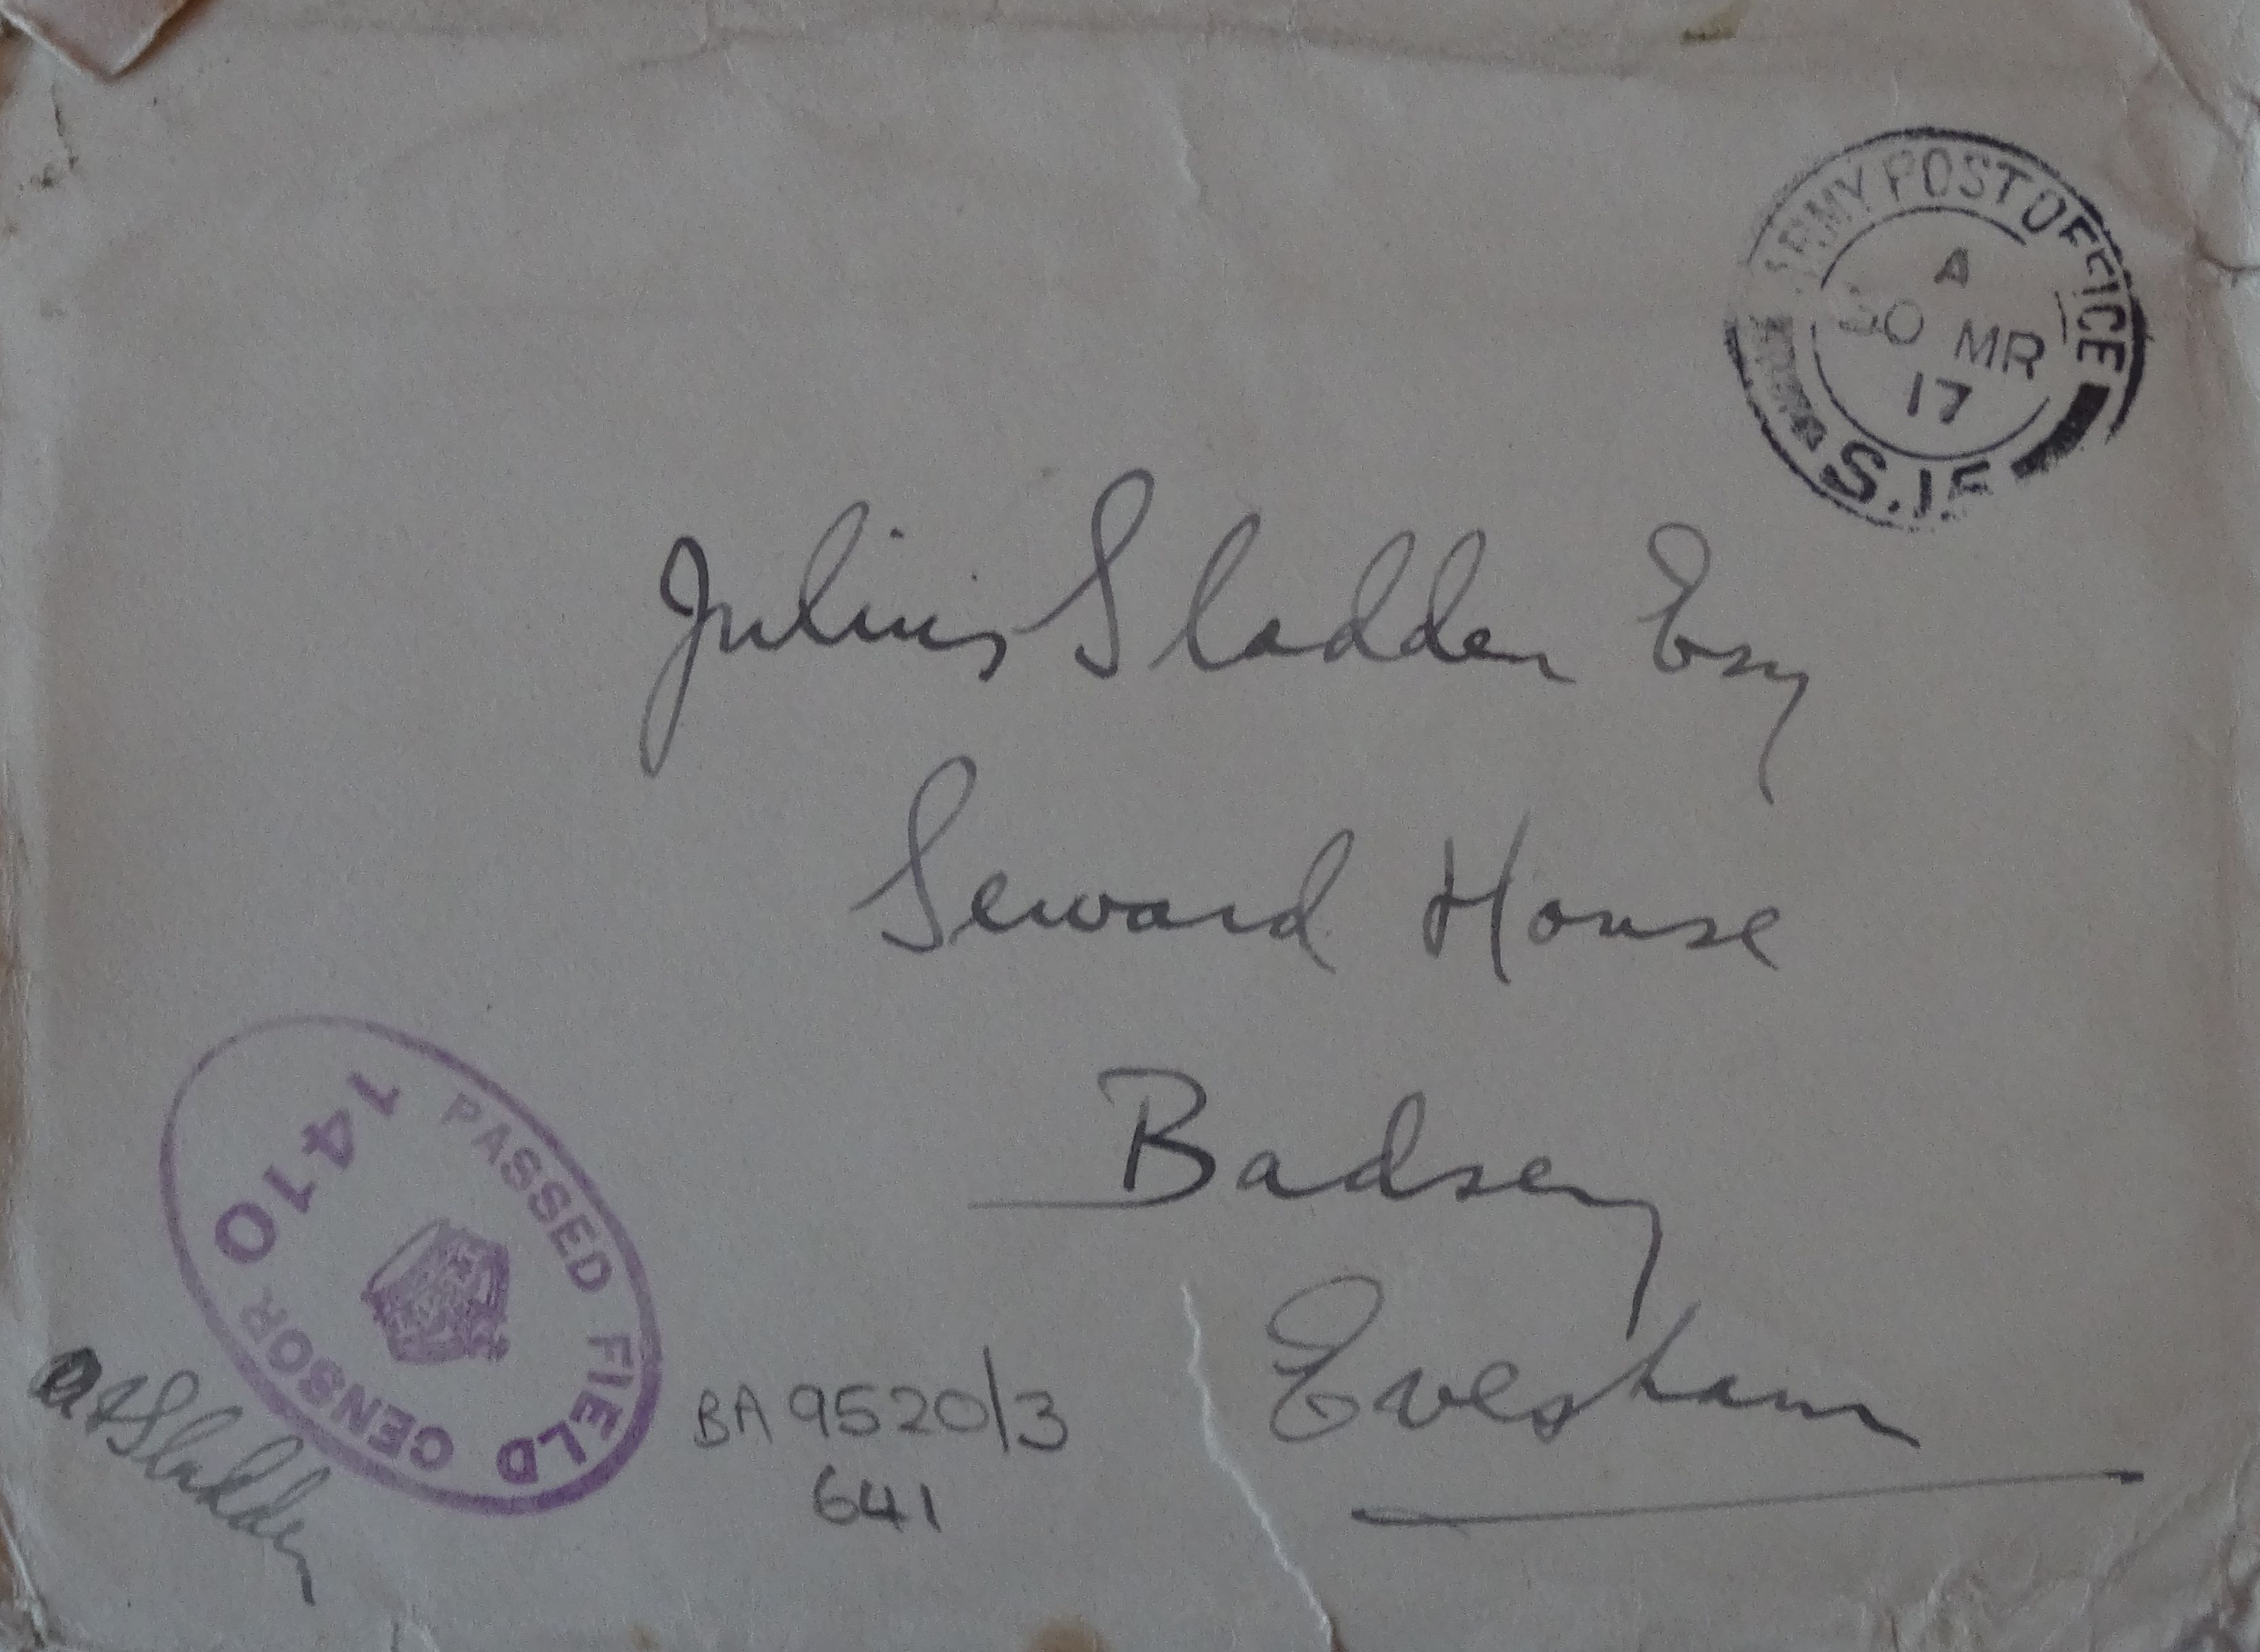 ARMY POST OFFICE
A
30 MR
17
S.
Julius Sladden Esq
Seward House
Badsey
Evesham
PASSED FIELD CENSOR
1410
Sladden
BA 9520/3
641